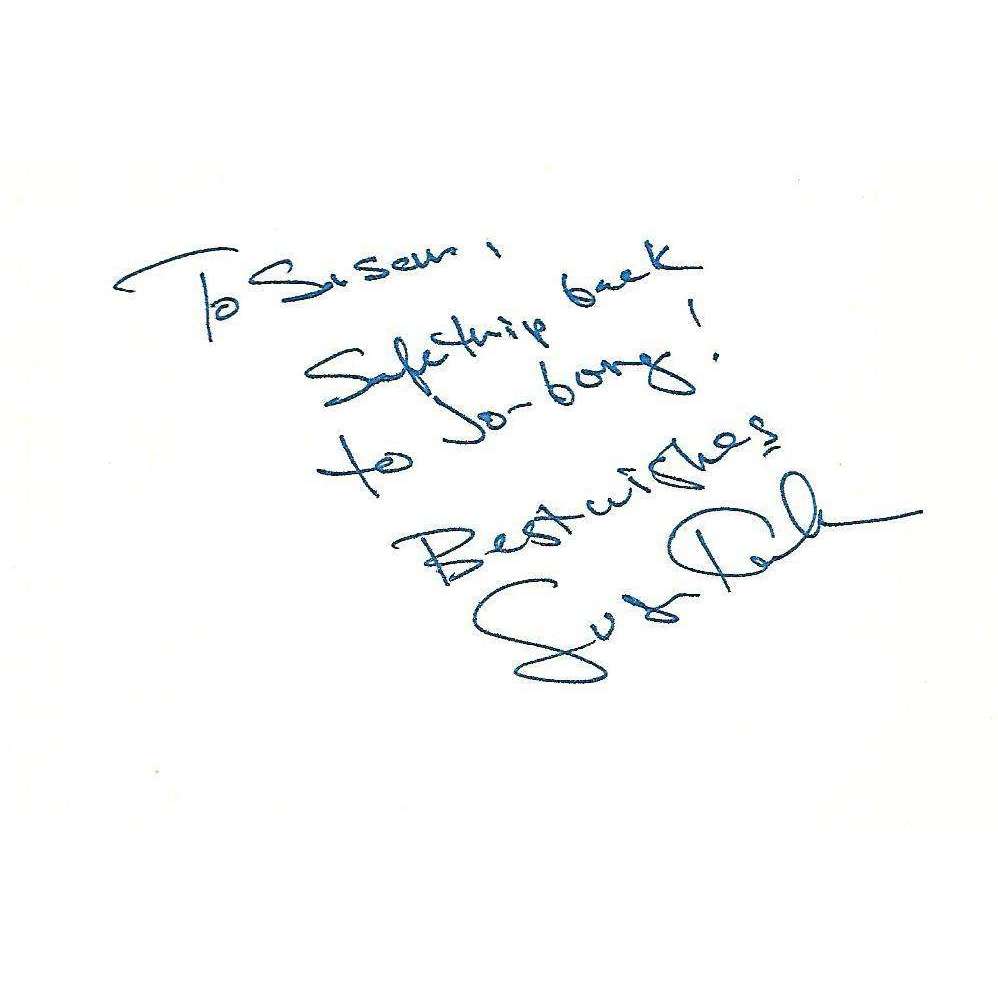 To Susan,
Safe trip back
to Jo-borg!
Best wishes